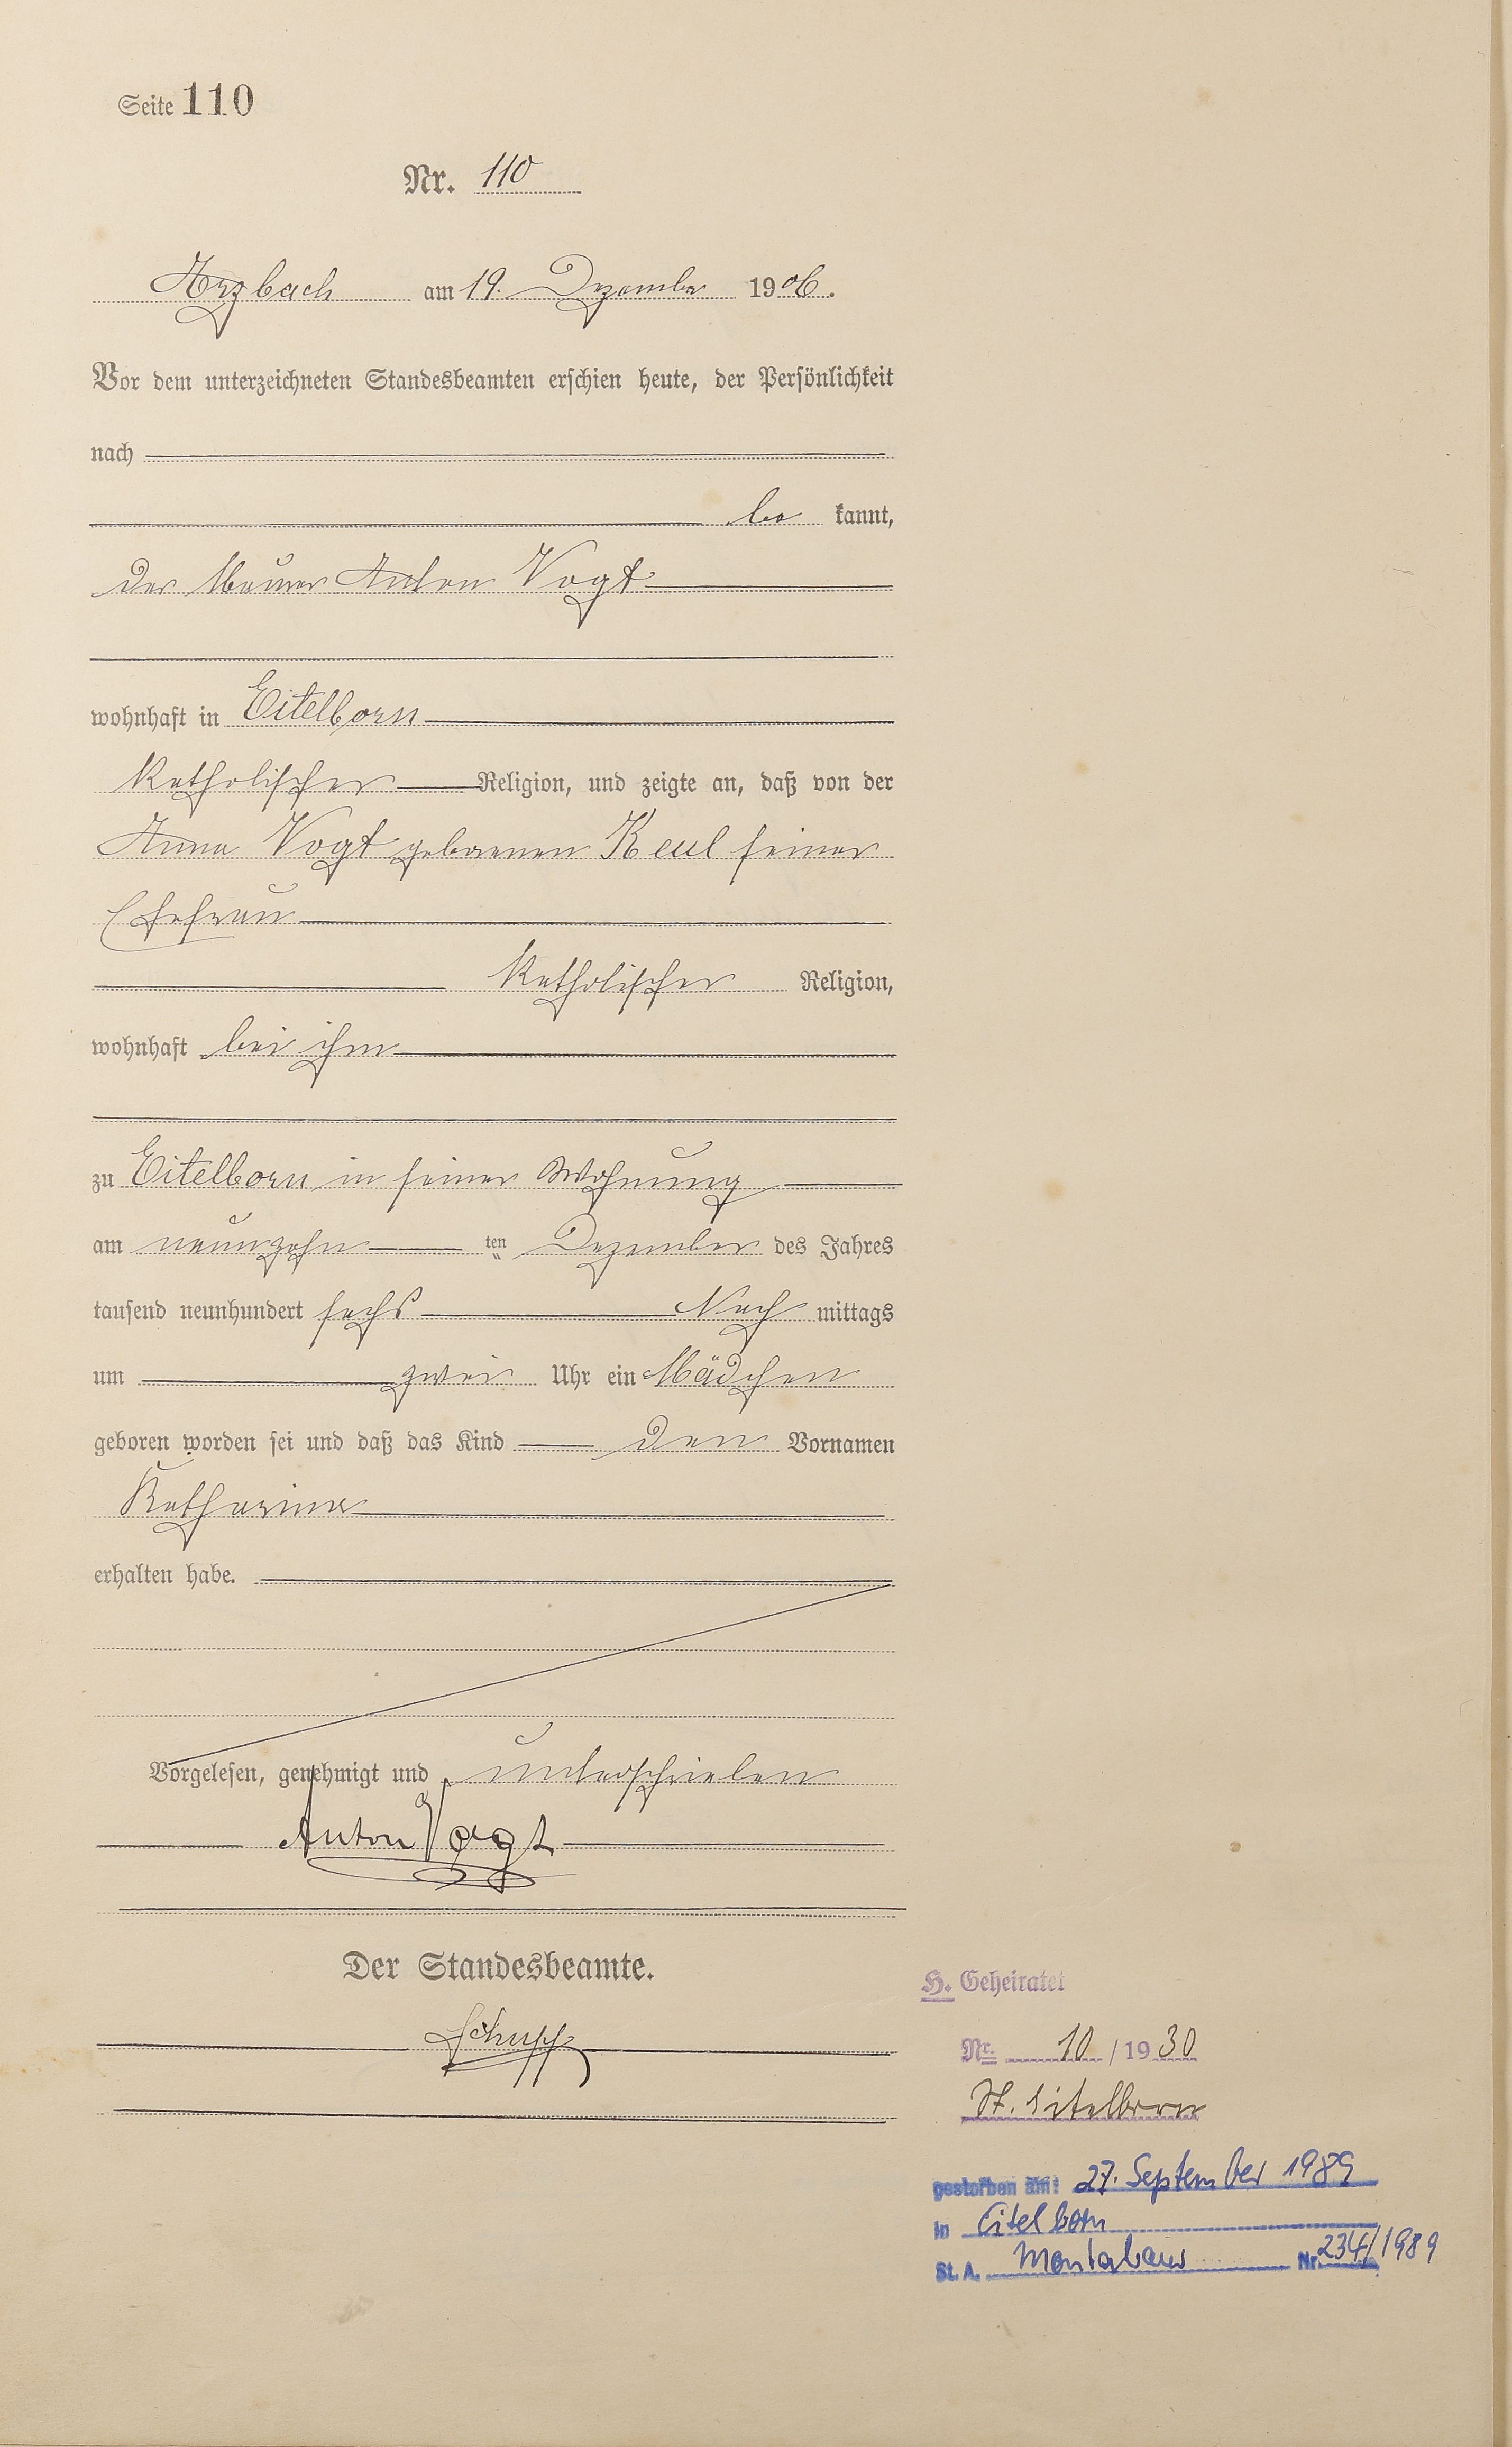 Seite 110
Nr. 110
Arzbach am 19. Dezember 1906.
Vor dem unterzeichneten Standesbeamten erschien heute, der Persönlichkeit
nach
be kannt,
der Maurer Anton Vogt
wohnhaft in Eitelborn
katholischer Religion, und zeigte an, daß von der
Anna Vogt geborenen Keul seiner
Ehefrau
katholischer Religion,
wohnhaft bei ihm
zu Eitelborn in seiner Wohnung
am neunzehn ten Dezember des Jahres
tausend neunhundert sechs Nach mittags
um zwei Uhr ein Mädchen
geboren worden sei und daß das Kind den Vornamen
Katharina
erhalten habe.
Vorgelesen, genehmigt und unterschrieben
Anton Vogt
Der Standesbeamte.
Schupp
H. Geheiratet
Nr. 10 / 1930
St. Eitelborn
gestorben am: 27. September 1989
in Eitelborn
St. A. Montabaur Nr. 234/1989